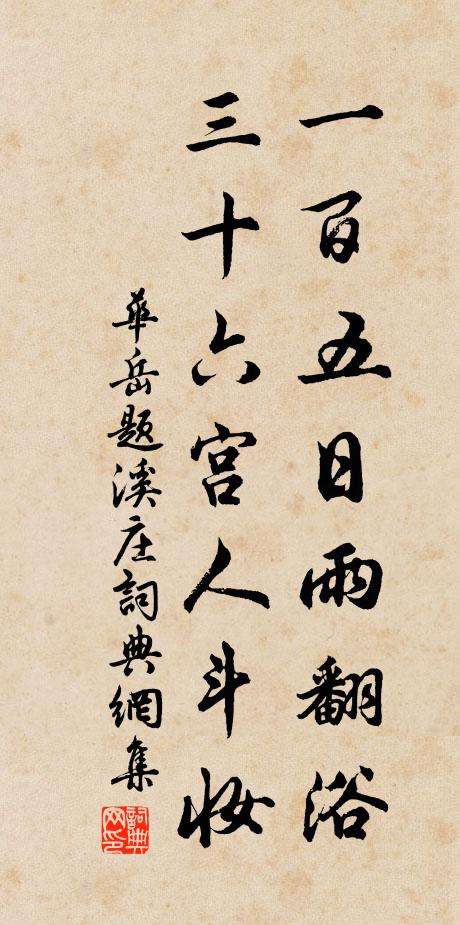 一百五日雨翻浴
三十六宫人斗妆
華岳題溪庄詞典網集
詞典网印